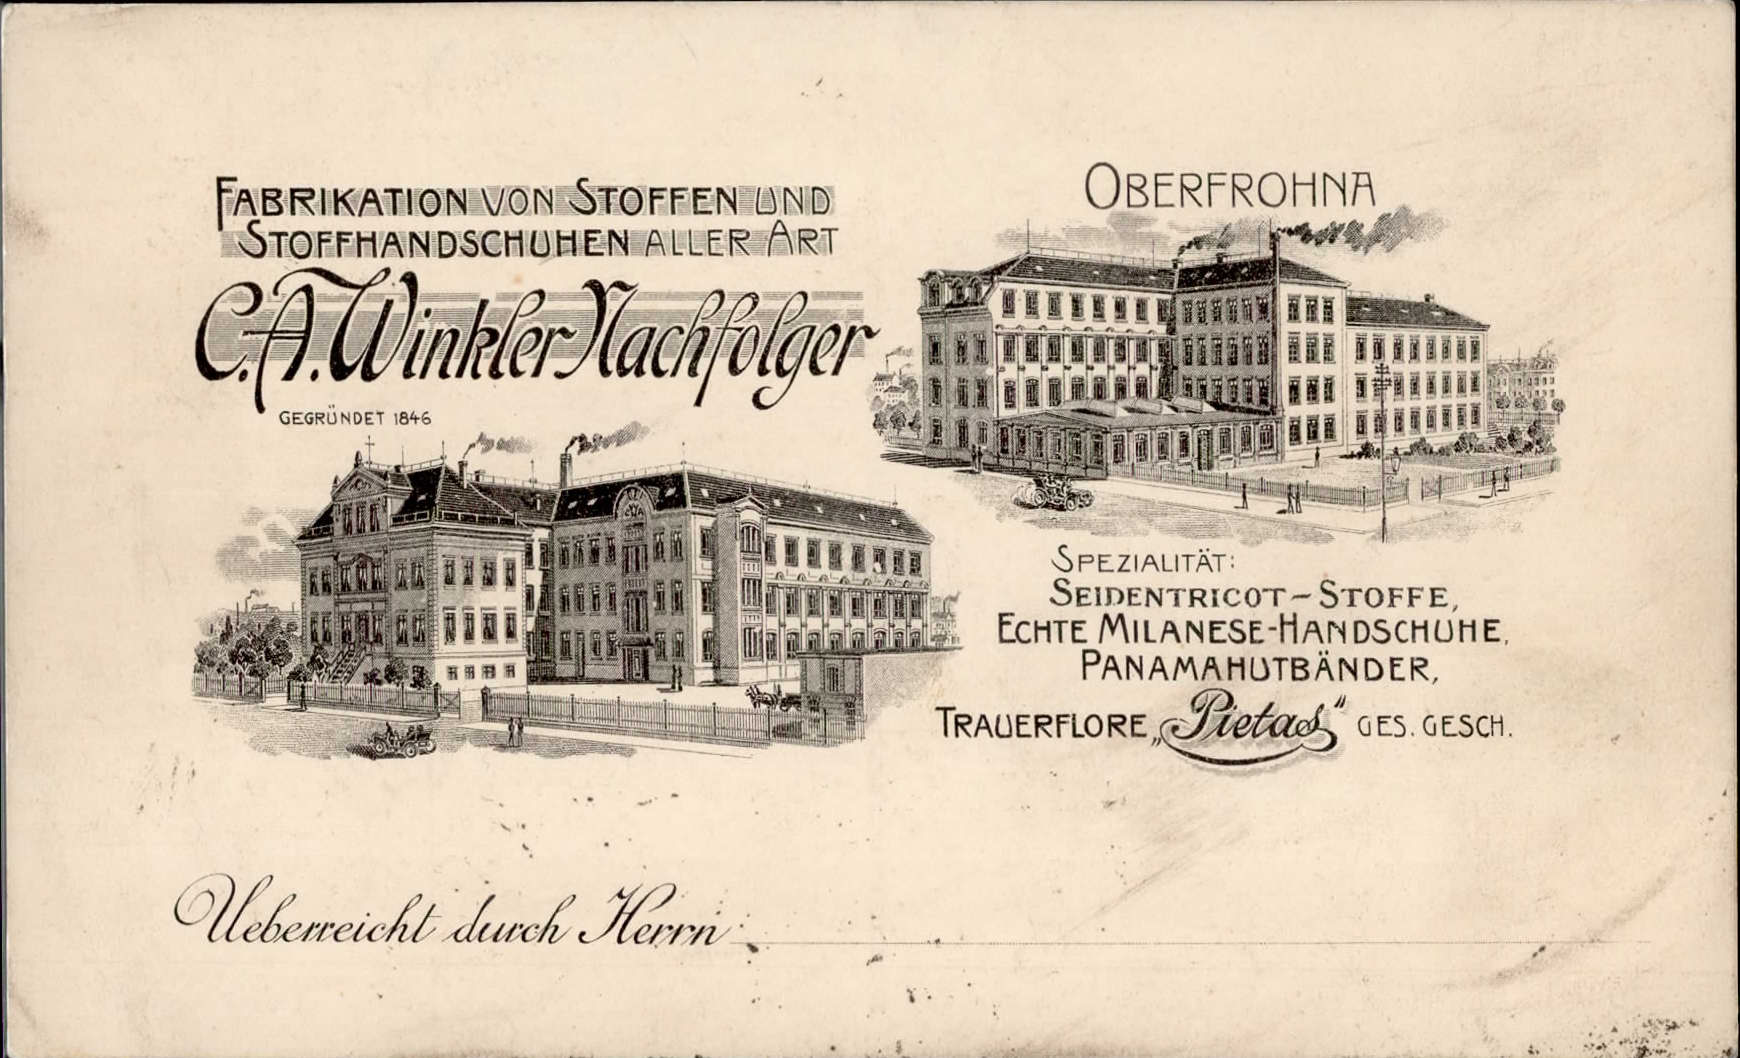 FABRIKATION VON STOFFEN UND
STOFFHANDSCHUHEN ALLER ART
C. A. Winkler Nachfolger
GEGRÜNDET 1846
OBERFROHNA
SPEZIALITÄT:
SEIDENTRICOT-STOFFE,
ECHTE MILANESE-HANDSCHUHE,
PANAMAHUTBÄNDER,
TRAUERFLORE „Pietas" GES. GESCH.
Ueberreicht durch Herrn